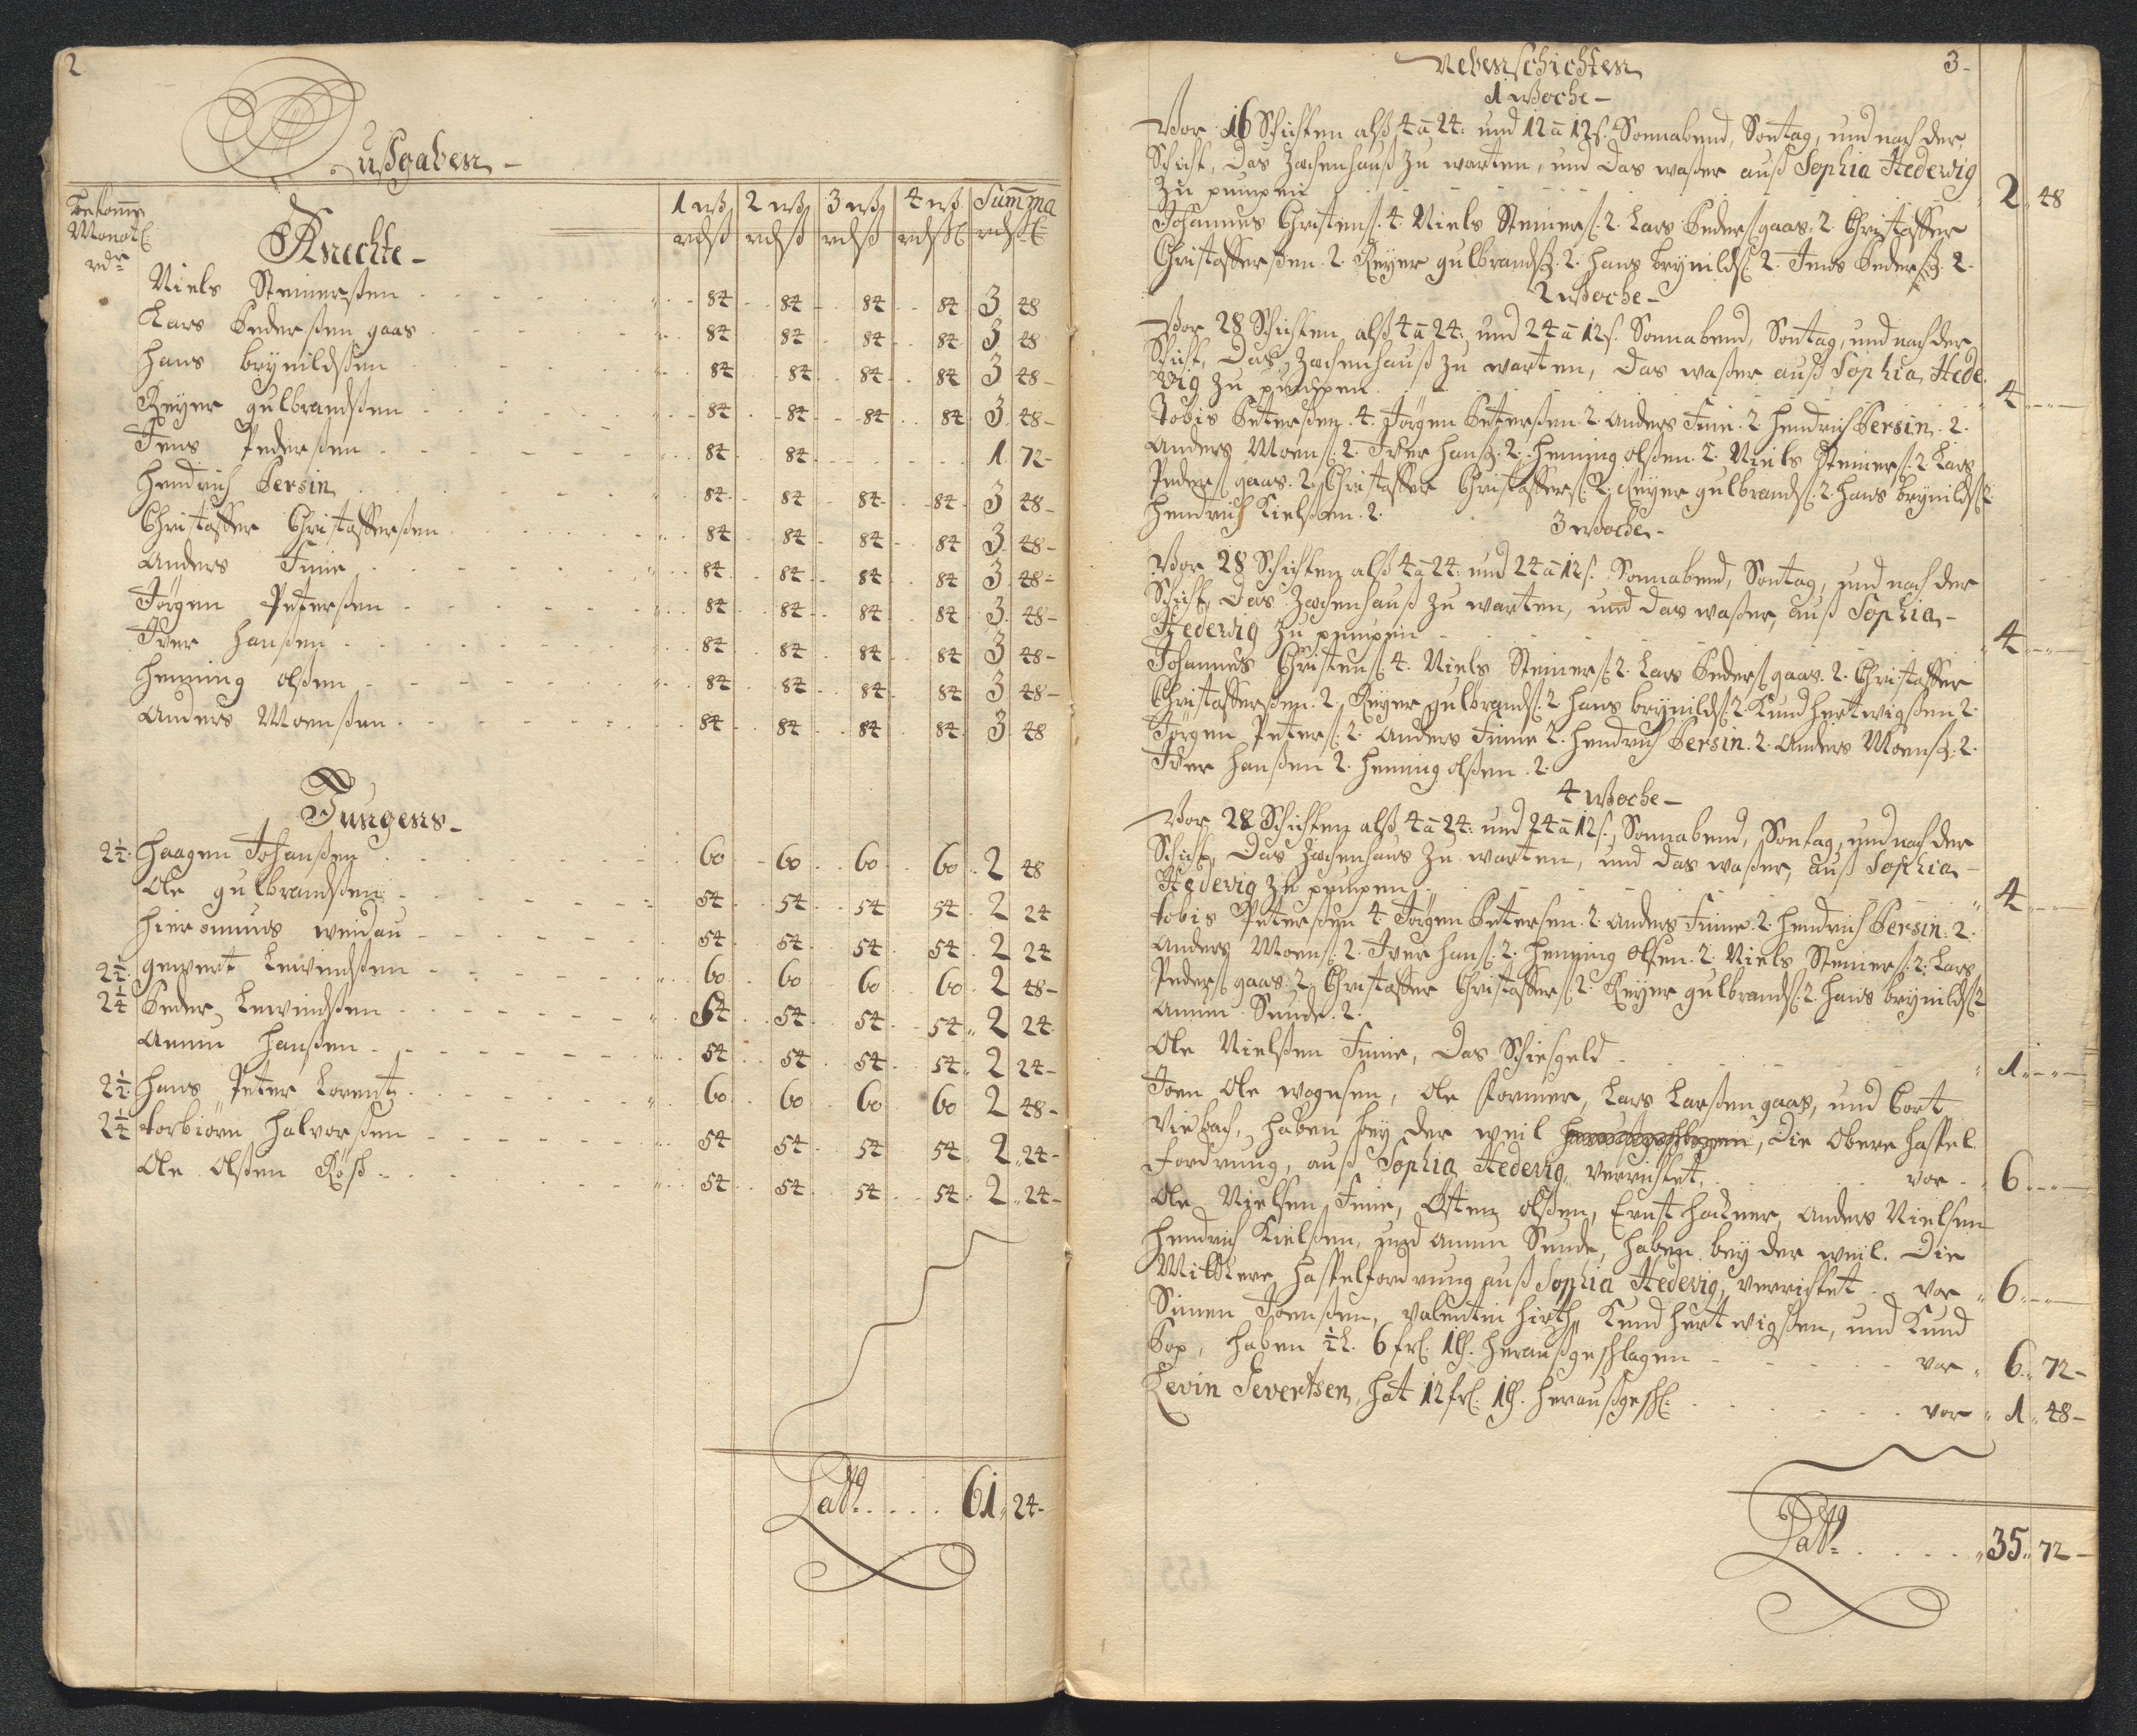 2
Außgaben
Bekomen Monatl: rdr
Knechte
1 wß 2 wß 3 wß 4 wß Summa
rdß rdß rdß rdß rdß
Niels Steinerßen 84 84 84 84 3 48
Lars Pederßen gaas 84 84 84 84 3 48
Hans brynildßen 84 84 84 84 3 48
Reyer gulbrandßen 84 84 84 84 3 48
Jens Pederßen 84 84 1 72
Hendrich Persin 84 84 84 84 3 48
Christoffer Christofferßen 84 84 84 84 3 48
Anders Finne 84 84 84 84 3 48
Jörgen Peterßen 84 84 84 84 3 48
Iver Hanßen 84 84 84 84 3 48
Henning olßen 84 84 84 84 3 48
Anders Moenßen 84 84 84 84 3 48
Jungens
2½ Haagen Johanßen 60 60 60 60 2 48
Ole gulbrandßen 54 54 54 54 2 24
Hieronimus wendau 54 54 54 54 2 24
2½ gewert Lewindßen 60 60 60 60 2 48
2¼ Peder Lewindßen 54 54 54 54 2 24
Amun Hanßen 54 54 54 54 2 24
2½ Hans Peter Lorentz 60 60 60 60 2 48
2¼ torbiörn Halvorßen 54 54 54 54 2 24
Ole Olßen Röß 54 54 54 54 2 24
Latt. 61 24
3
Nebenschichten
1 Woche
Vor 16 Schichten alß 4 a 24: und 12 a 12 s. Sonnabend, Sontag, und nach der
Schicht, das Zechenhauß zu warten, und das waßer auß Sophia Hedewig
zu pumpen 2 48
Johannes Christens. 4. Niels Steiners. 2. Lars Peders gaas. 2. Christoffer
Christofferßen. 2. Reyer gulbrandß. 2. Hans brynilds. 2. Jens Pederß. 2.
2 Woche
Vor 28 Schichten alß 4 a 24: und 24 a 12 s. Sonnabend, Sontag, und nach der
Schicht, das Zechenhauß zu warten, das waßer auß Sophia Hede
vig zu pumpen 4
Tobis Peterßen. 4. Jörgen Peterßen. 2. Anders Finne. 2. Hendrich Persin. 2.
Anders Moens. 2. Iver Hanß. 2. Henning olßen. 2. Niels Steiners. 2. Lars
Peders gaas. 2. Christoffer Christoffers. 2. Reyer gulbrands. 2. Hans brynilds. 2
Hendrich Kielßen. 2.
3 Woche
Vor 28 Schichten alß 4 a 24: und 24 a 12 s. Sonnabend, Sontag, und nach der
Schicht, das Zechenhauß zu warten, und das waßer, auß Sophia
Hedevig zu pumpen 4
Johannes Christens. 4. Niels Steiners. 2. Lars Peders gaas. 2. Christoffer
Christofferßen. 2. Reyer gulbrands. 2. Hans brynilds. 2. Knud Hertwigßen 2.
Jörgen Peters. 2. Anders Finne 2. Hendrich Persin. 2. Anders Moenß. 2.
Iver Hanßen 2. Henning olßen. 2.
4 Woche
Vor 28 Schichten alß 4 a 24: und 24 a 12 s., Sonnabend, Sontag, und nach der
Schicht, das Zechenhaus zu warten, und das waßer, auß Sophia
Hedevig zu pumpen 4
Tobis Peterßen 4. Jörgen Petersen. 2. Anders Finne. 2. Hendrich Persin. 2.
Anders Moens. 2. Iver Hans. 2. Henning Olsen. 2. Niels Steiners. 2. Lars
Peders gaas. 2. Christoffer Christoffers. 2. Reyer gulbrands. 2. Hans brynilds. 2
Amun Sunde. 2.
Ole Nielßen Finne, das Schiesgeld 1
Joen Ole wognsen, Ole former, Lars Larßen gaas, und Cort
Viebach, haben bey der weil die obere Haspel
fordrung, auß Sophia Hedevig verrichtet, vor 6
Ole Nielsen Finne, Östen olßen, Ernst Hackner, Anders Nielsen
Hendrich Kielßen, und Amun Sunde, haben bey der weil. die
Mittlere Haspelfordrung auß Sophia Hedevig, verrichtet vor 6
Simen Joenßen, Valentin Hirth, Knud Hertwigßen, und Knud
Kop, haben ½ L. 6 frl. 1 ß. heraußgeschlagen vor 6 72
Levin Severtsen, hat 12 frl. 1 ß. heraußgeschl: vor 1 48
Latt. 35 72